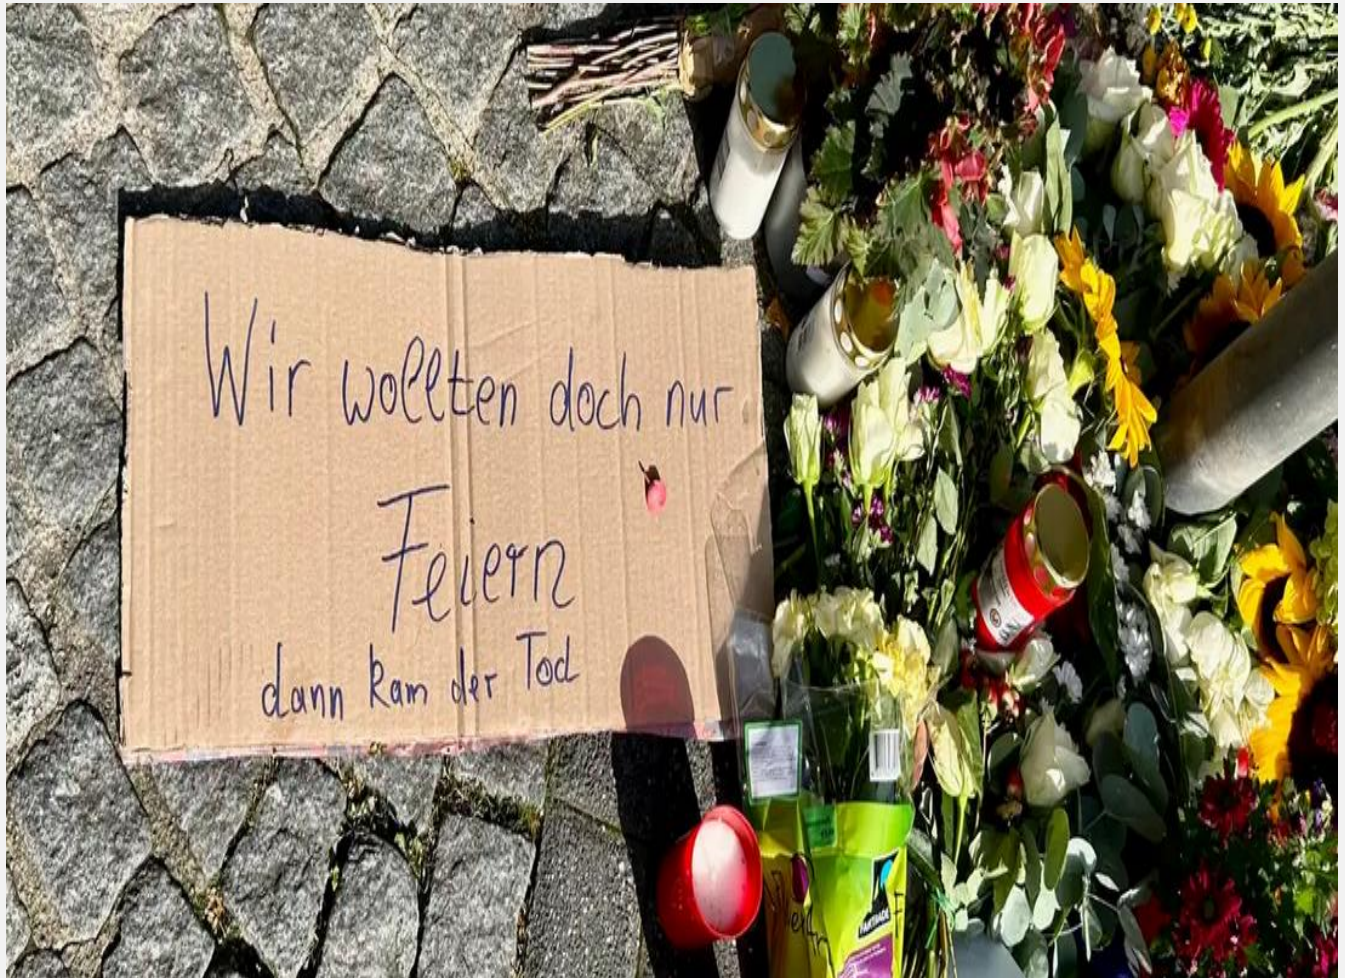 Wir wollten doch nur
Feiern
dann kam der Tod
FAIRTRADE